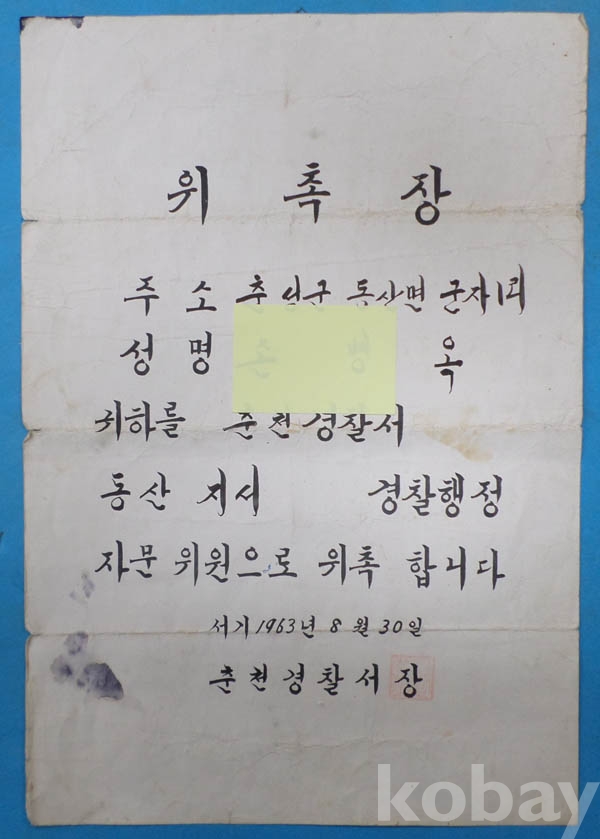 위촉장
주소 춘성군 동산면 군자리
성명 옥
귀하를 춘천경찰서
동산 지서 경찰행정
자문 위원으로 위촉 합니다
서기 1963년 8월 30일
춘천경찰서장
kobay